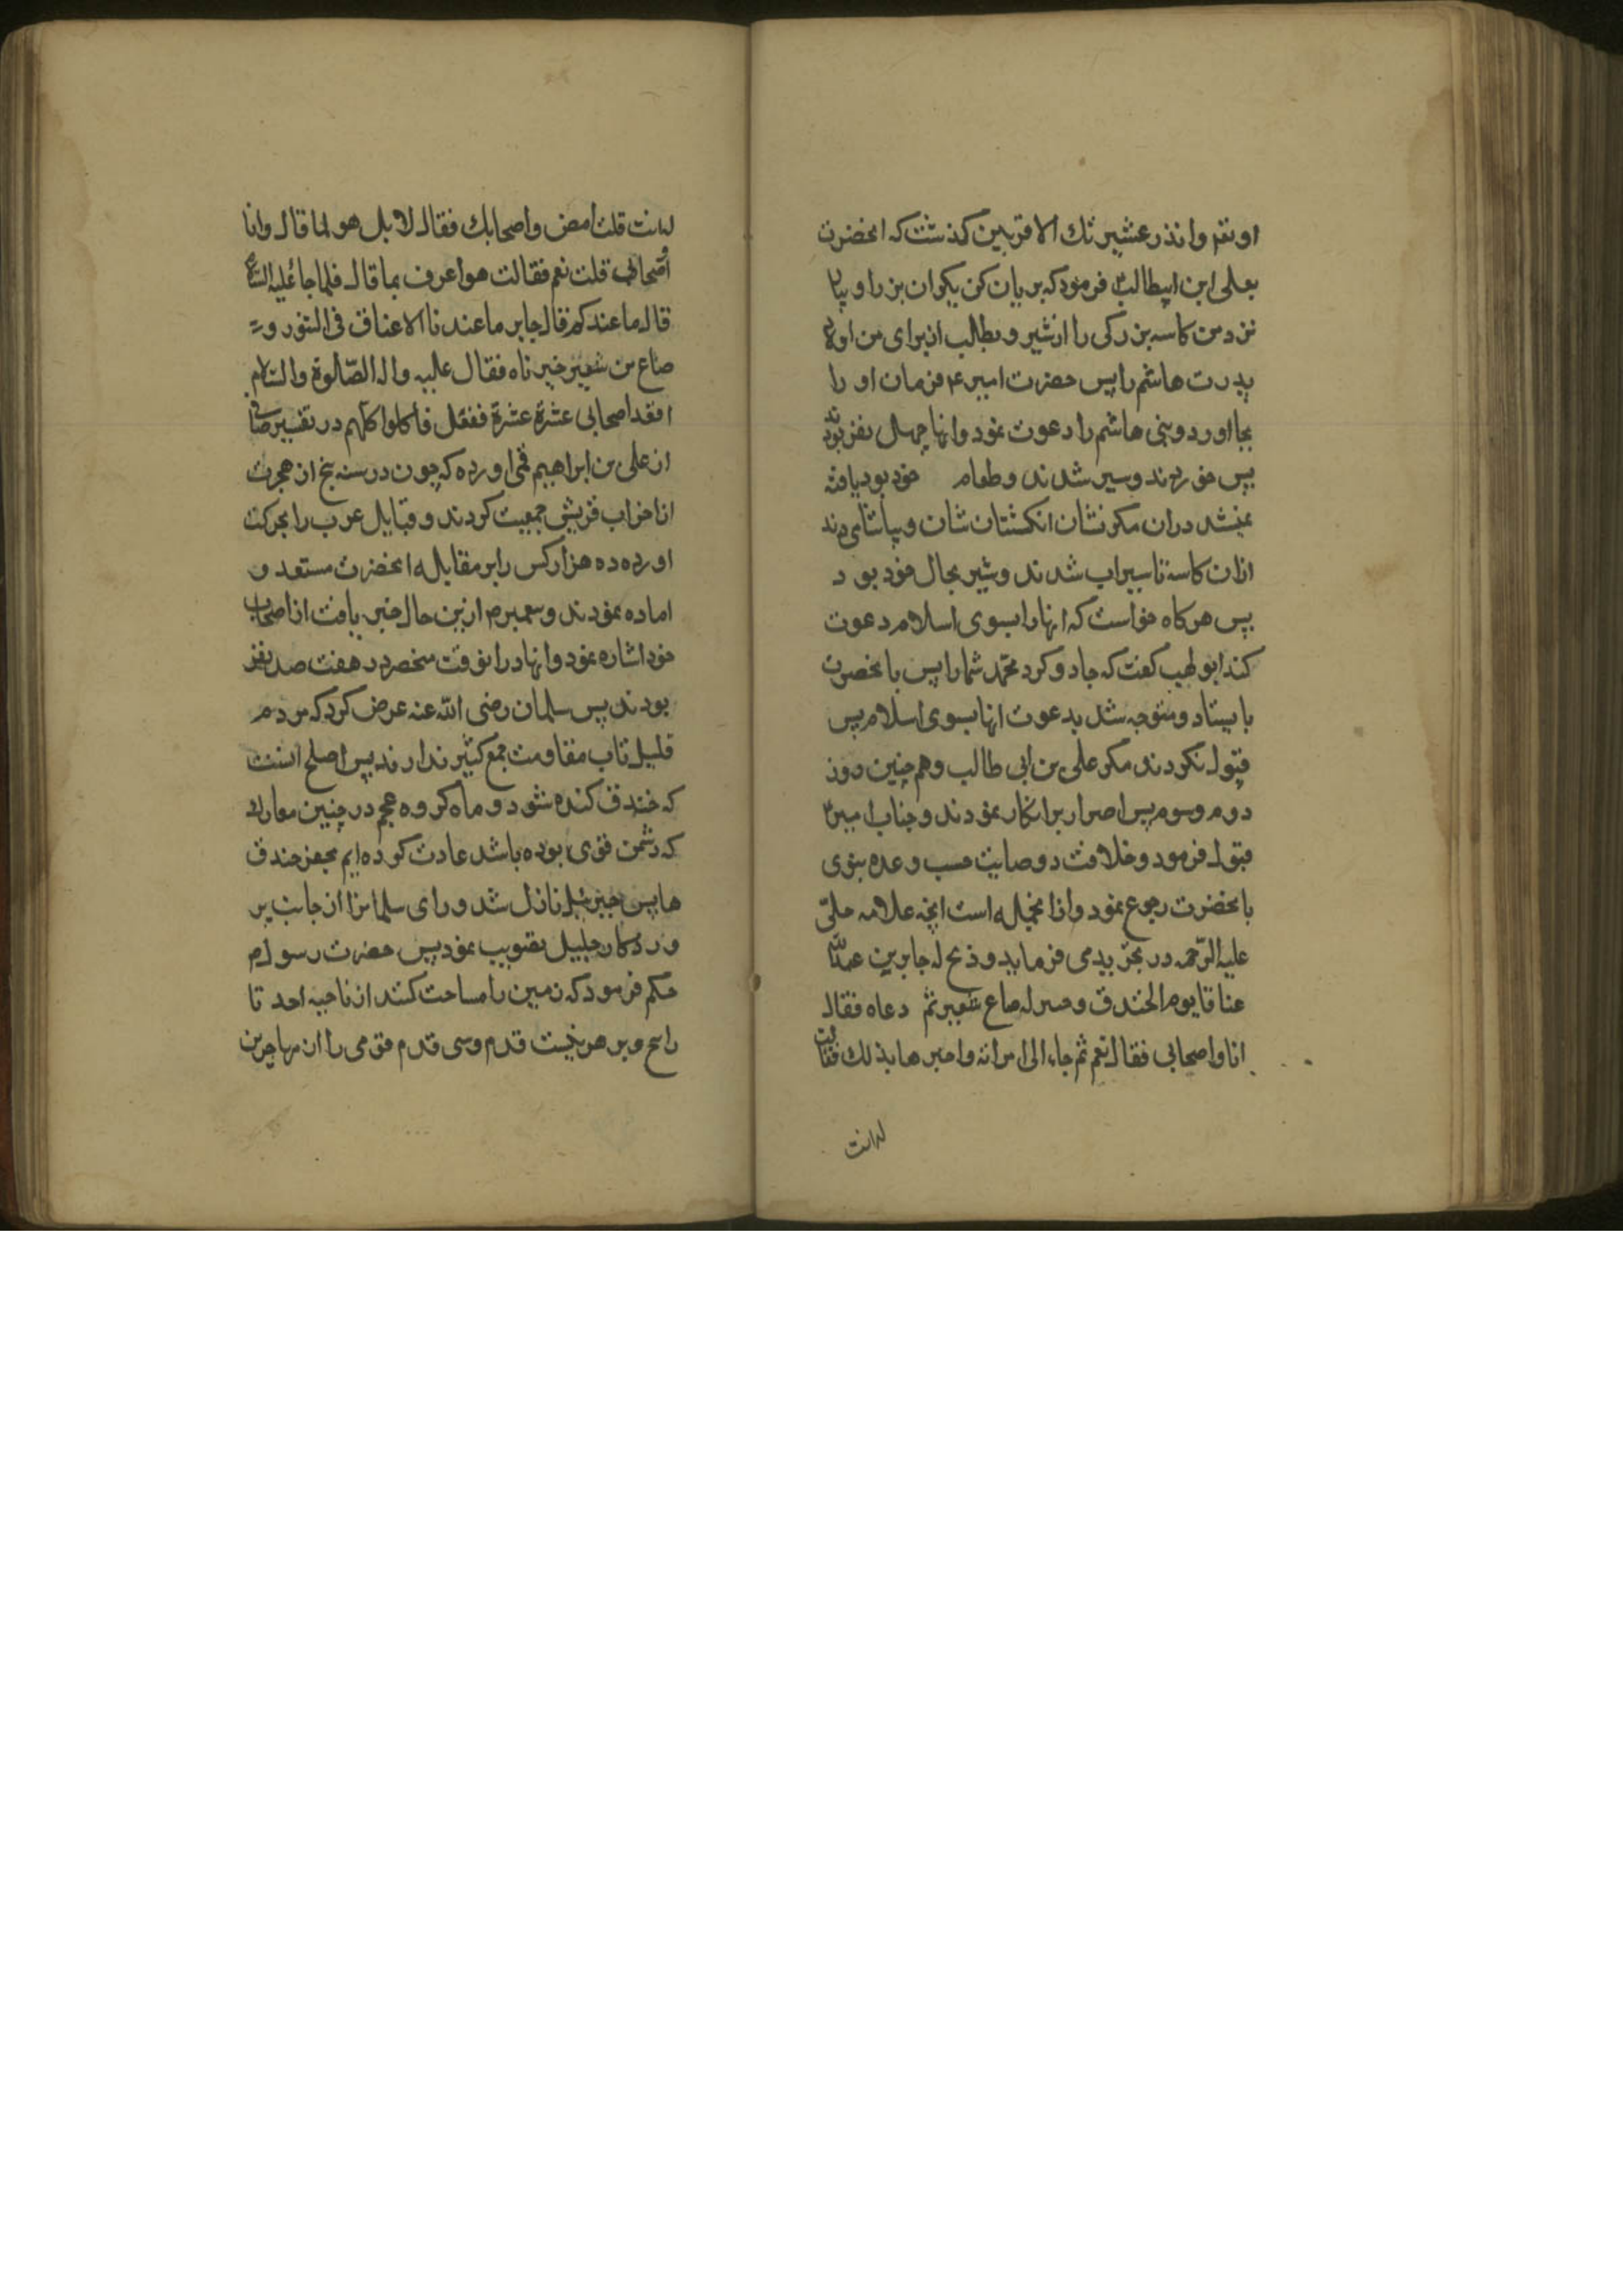 او نغم وانذر عشیرتك الاقربین کذشت که انحضرت
بعلی ابن ابیطالب فرمود که بریان کن یکران بز را و بیا
نزد من کاسه بزرکی را از شیر و بطلب از برای من اولاد
پدرت هاشم را پس حضرت امیر ع فرمان او را
بجا اورد و بنی هاشم را دعوت نمود وانها چهل نفر بودند
پس خوردند و سیر شدند و طعام خود بود یافته
نمیشد دران مکر نشان انکشتان شان و بیاشامیدند
ازان کاسه تا سیراب شدند و شیر بحال خود بود
پس هرکاه خواست که انها را بسوی اسلام دعوت
کند ابولهب کفت که جادو کرد محمّد شما را پس بانحضرت
بایستاد و متوجه شد بدعوت انها بسوی اسلام پس
قبول نکردند مکر علی بن ابی طالب وهم چنین روز
دوم وسوم پس اصرار بر انکار نمودند و جناب امیر
قبول فرمود و خلافت و وصایت حسب وعده بنوی
بانحضرت رجوع نمود وازانجمله است انچه علامه حلّی
علیه الرّحمه در تجرید می فرماید و ذبح له جابر بن عبداللّه
عناقا یوم الخندق وخبز له صاع شعیر ثم دعاه فقال
انا واصحابی فقال نعم ثم جاء الی امراته واخبرها بذلك فقالت
لهانت
لهانت قلت امض واصحابك فقال لا بل هو لما قال وانا
واصحابی قلت نعم فقالت هو اعرف بما قال فلما جاء علیه السّلام
قال ما عندکم قال جابر ما عندنا الا عناق فی التنور و
صاع من شعیر خبزناه فقال علیه واله الصّلوة والسّلام
اقعد اصحابی عشرة عشرة ففعل فأکلوا کلّهم در تفسیر صافی
از علی بن ابراهیم قمی اورده که چون در سنه پنج از هجرت
احزاب قریش جمعیت کردند و قبایل عرب را بحرکت
اورده ده هزار کس را بر مقابله انحضرت مستعد و
اماده نمودند و پیغمبر م ازین حال خبر یافت از اصحاب
خود اشاره نمود وانها دران وقت منحصر در هفت صد نفر
بودند پس سلمان رضی اللّه عنه عرض کرد که مردم
قلیل تاب مقاومت جمع کثیر ندارند پس اصلح انست
که خندق کنده شود و ماه کروه عجم در چنین معارك
که دشمن قوی بوده باشد عادت کرده ایم بحفر خندق
ها پس جبرئیل نازل شد و رای سلمانرا از جانب پر
وردکار جلیل تصویب نمود پس حضرت رسول م
حکم فرمود که زمین را مساحت کنند از ناحیه احد تا
راتج و بر هر بیست قدم و سی قدم قومی را از مهاجرین